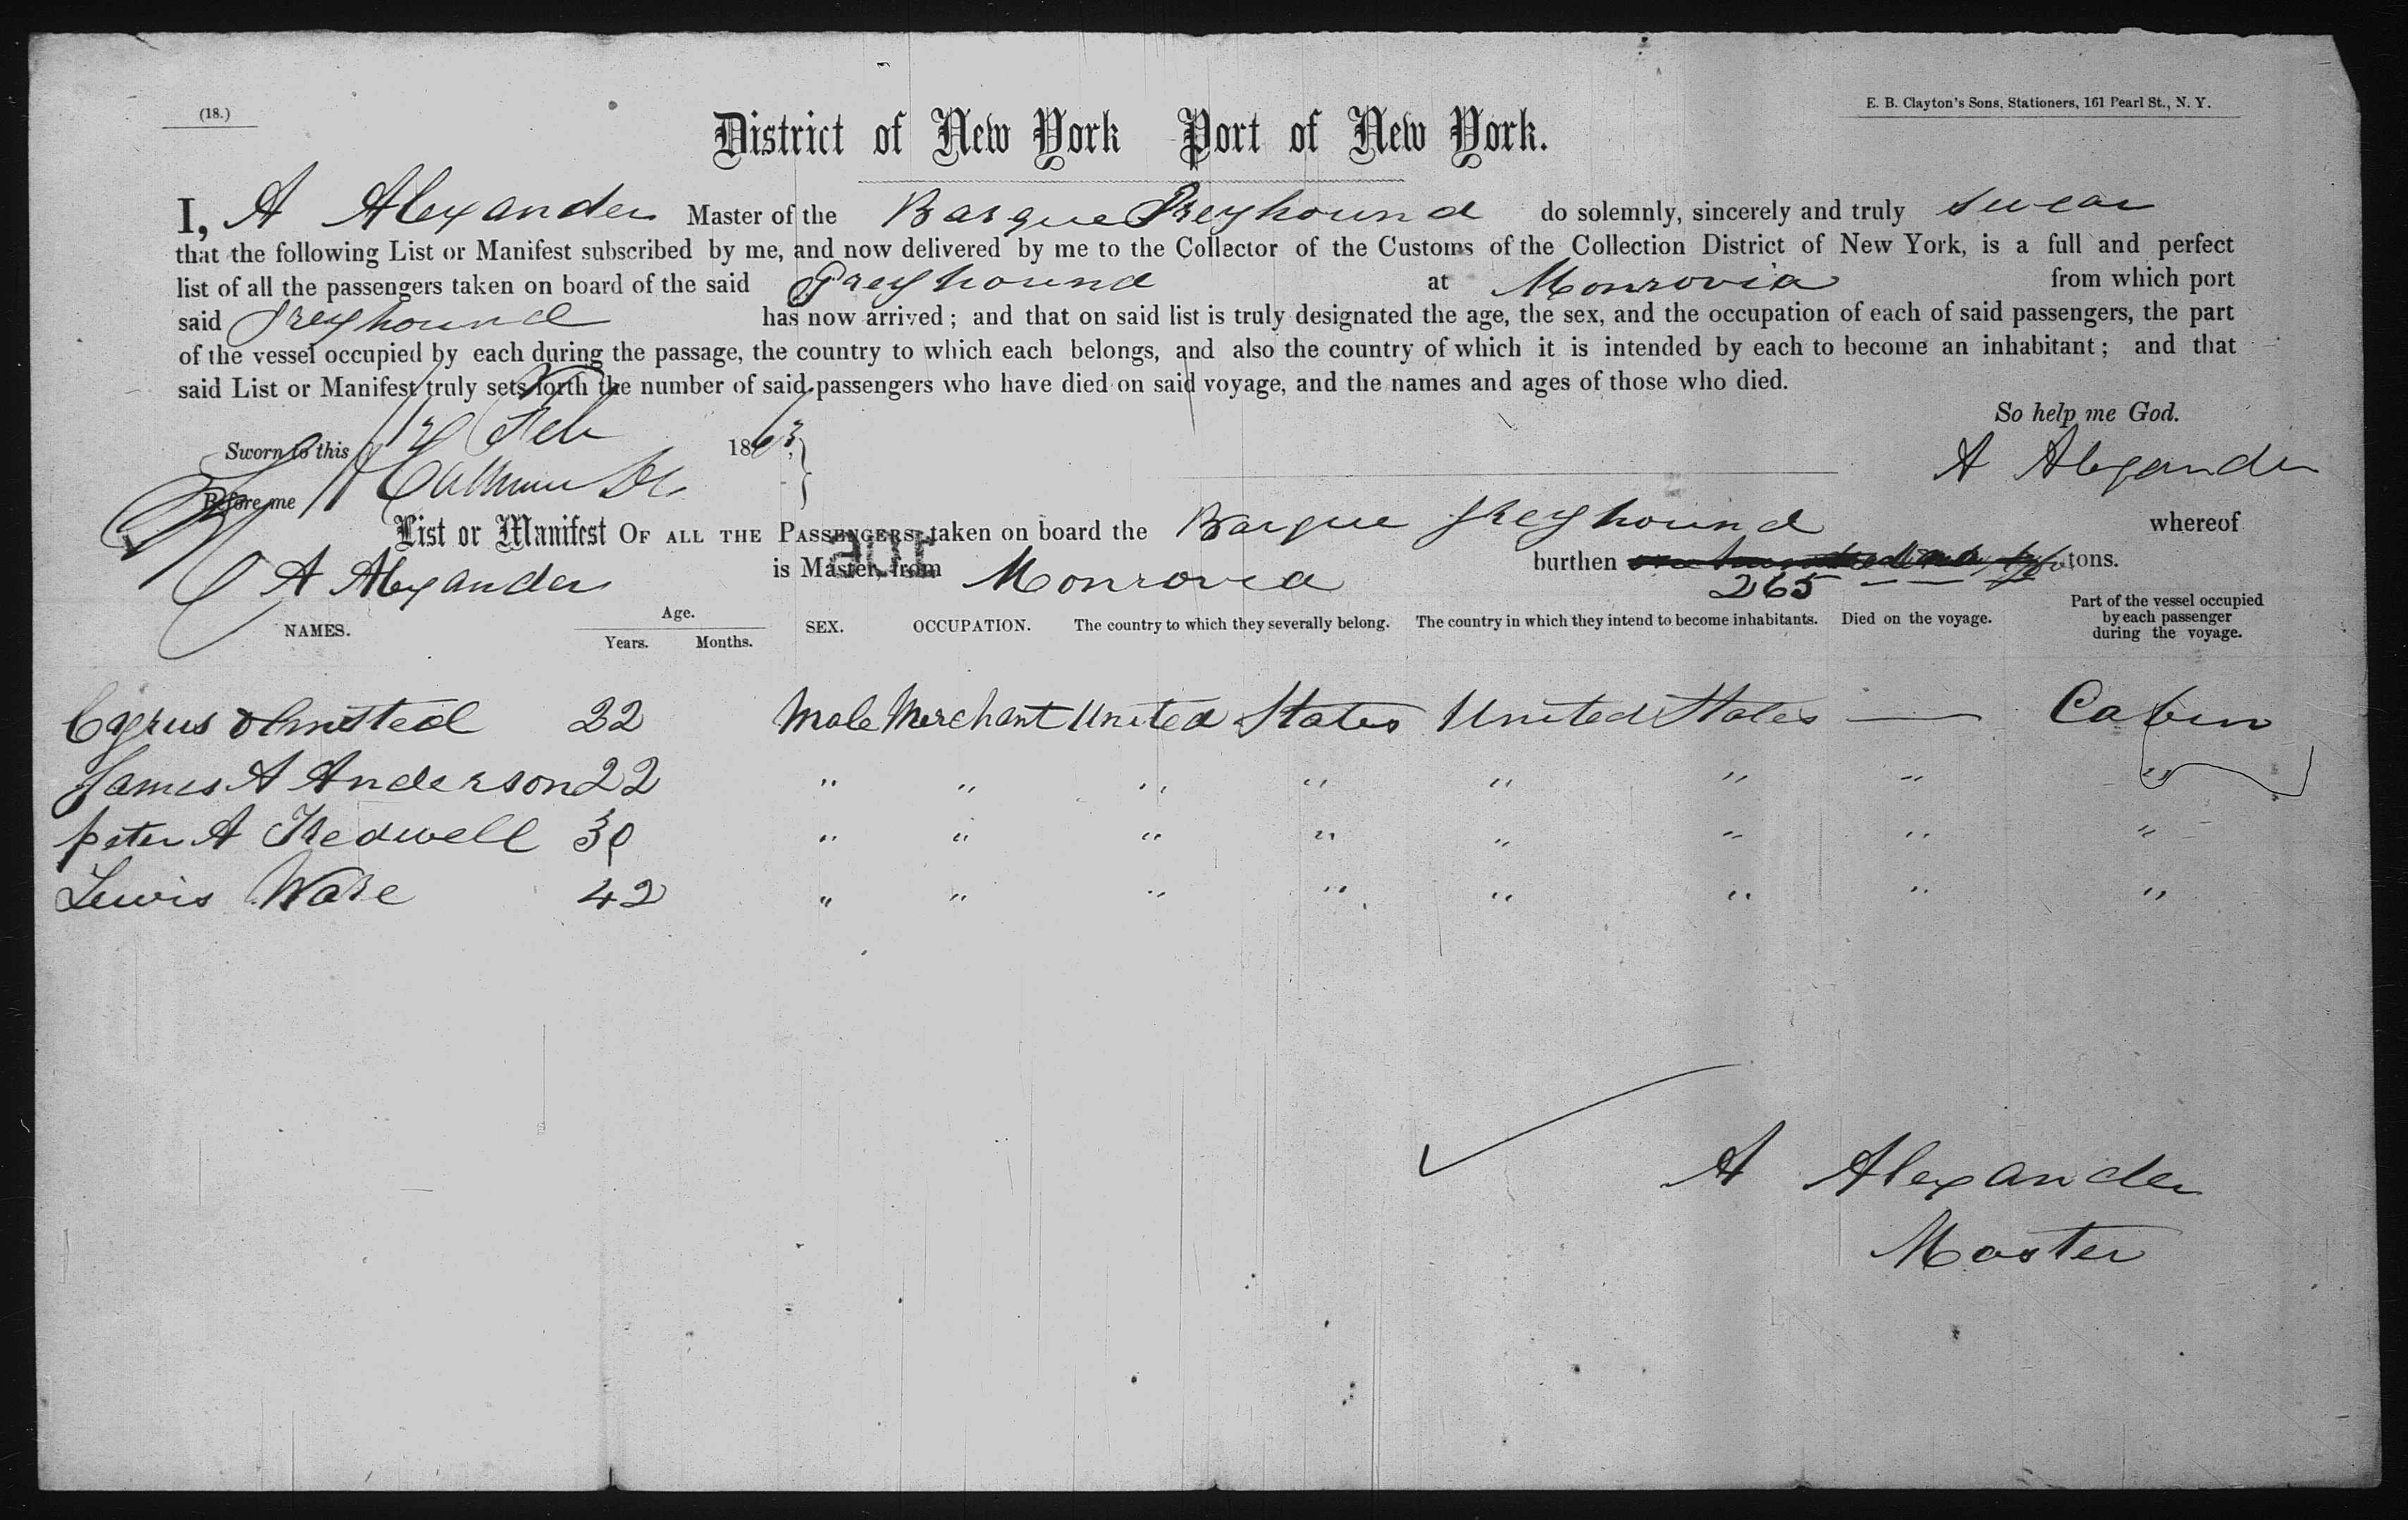 (18.)
E. B. Clayton's Sons, Stationers, 161 Pearl St., N. Y.
District of New York Port of New York.
I, A Alexander Master of the Barque Greyhound do solemnly, sincerely and truly swear
that the following List or Manifest subscribed by me, and now delivered by me to the Collector of the Customs of the Collection District of New York, is a full and perfect
list of all the passengers taken on board of the said Greyhound at Monrovia from which port
said Greyhound has now arrived; and that on said list is truly designated the age, the sex, and the occupation of each of said passengers, the part
of the vessel occupied by each during the passage, the country to which each belongs, and also the country of which it is intended by each to become an inhabitant; and that
said List or Manifest truly sets forth the number of said passengers who have died on said voyage, and the names and ages of those who died.
So help me God.
Sworn to this Feb 1863
A Alexander
Before me
List or Manifest OF ALL THE PASSENGERS taken on board the Barque Greyhound whereof
A Alexander is Master, from Monrovia burthen tons.
265
NAMES. Age. Years. Months. SEX. OCCUPATION. The country to which they severally belong. The country in which they intend to become inhabitants. Died on the voyage. Part of the vessel occupied by each passenger during the voyage.
Cyrus Olmsted 22 Male Merchant United States United States — Cabin
James A Anderson 22 " " " " " " " "
Peter A Tredwell 30 " " " " " " " "
Lewis Ware 42 " " " " " " " "
A Alexander
Master